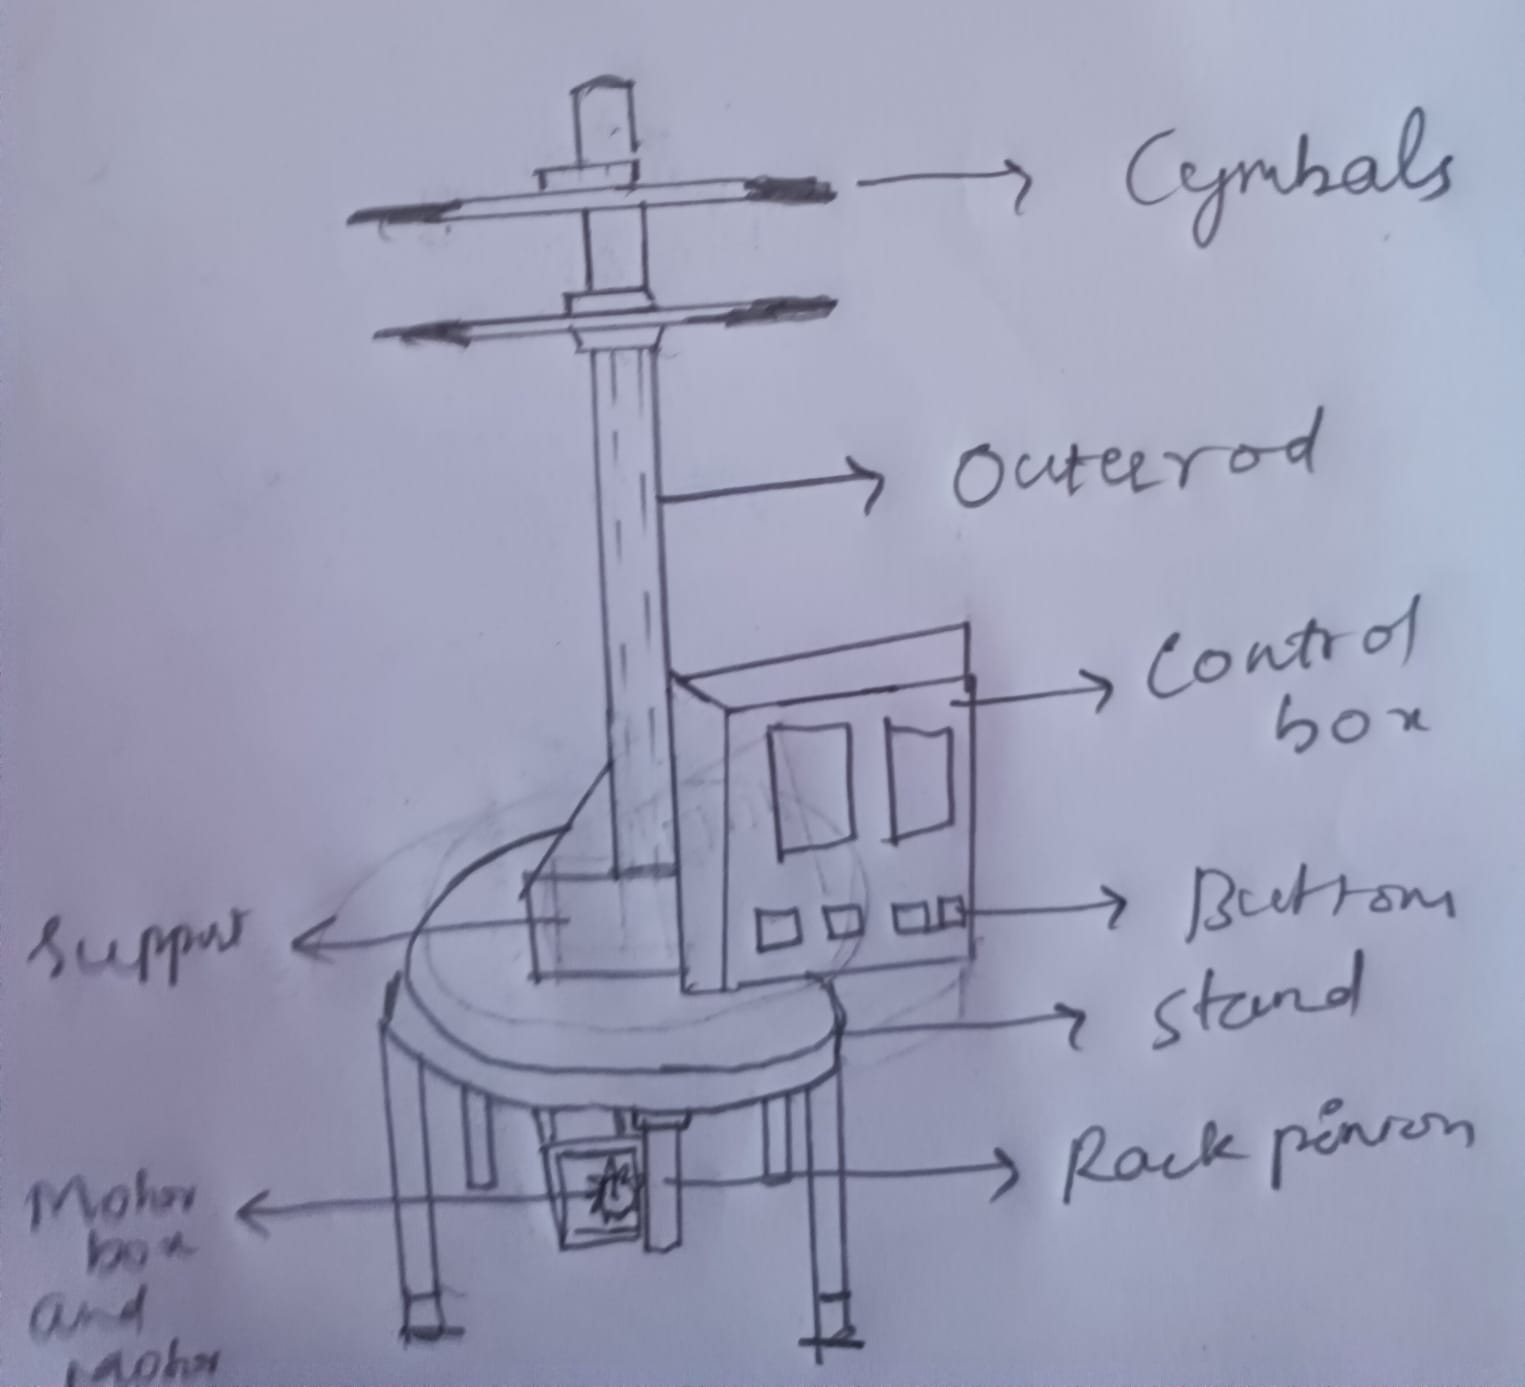 Cymbals
Outerrod
Control
box
Buttom
Support
Stand
Rack pinion
Motor
box
and
Motor